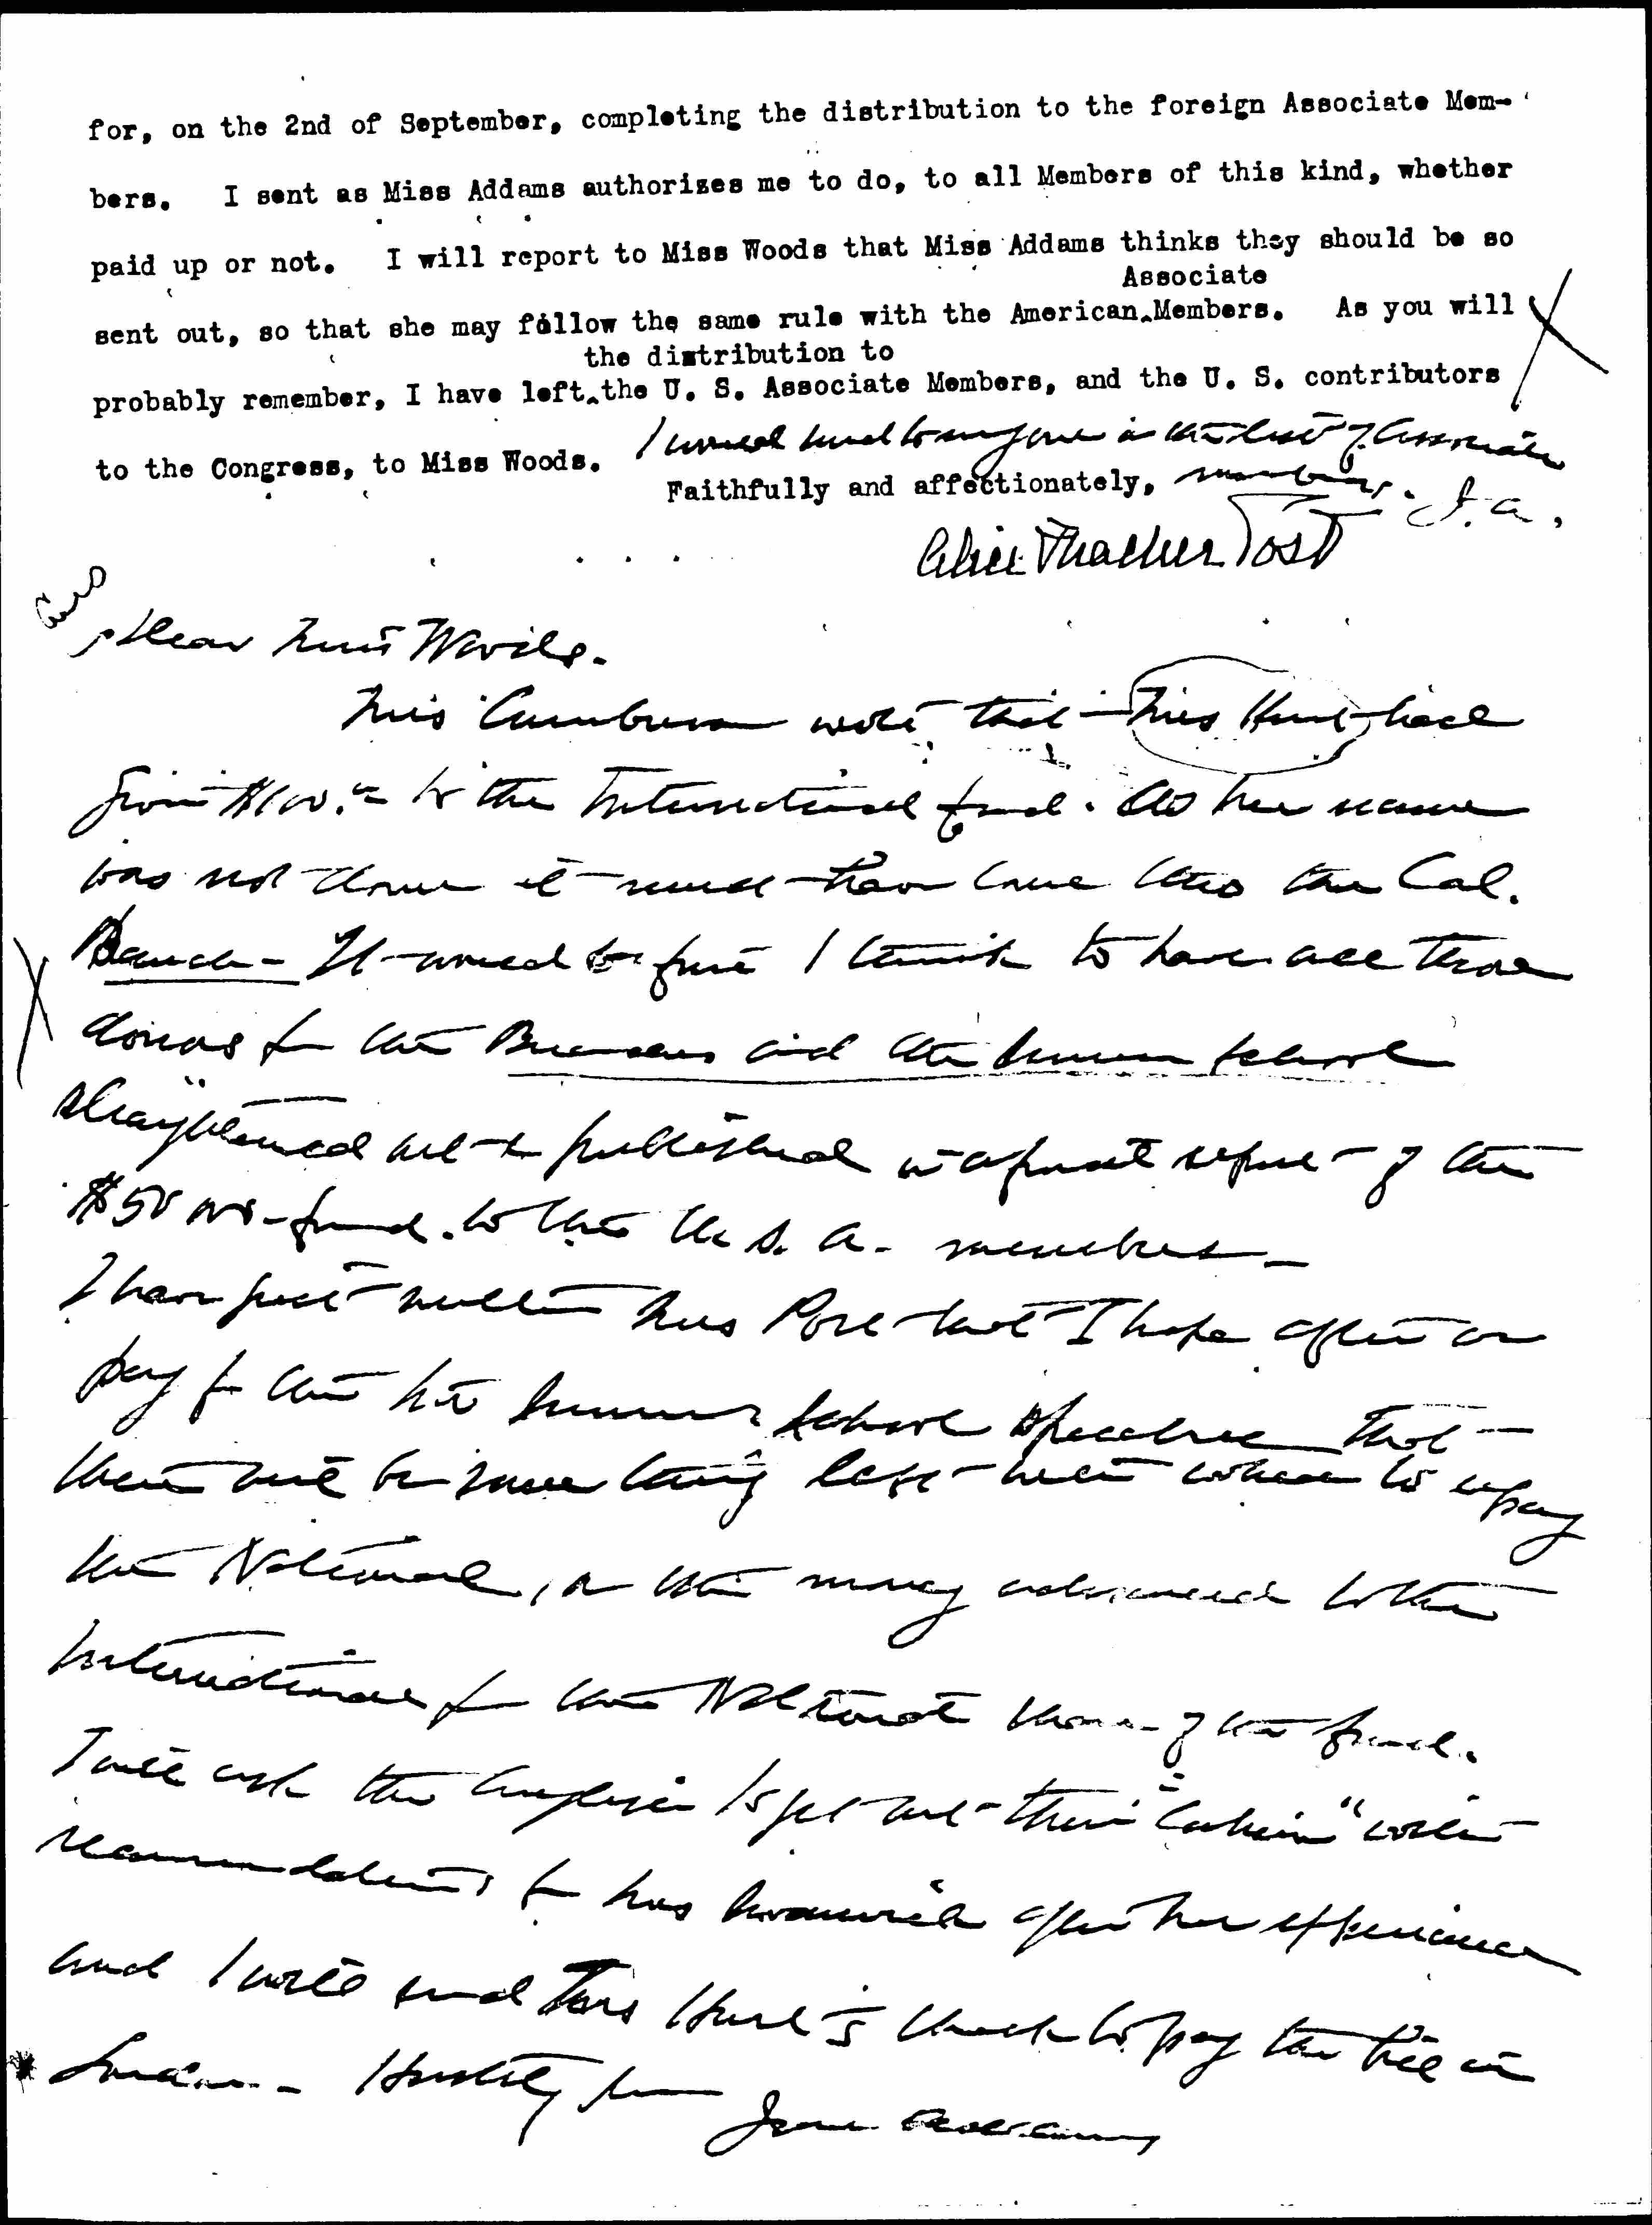 for, on the 2nd of September, completing the distribution to the foreign Associate Mem-
bers. I sent as Miss Addams authorizes me to do, to all Members of this kind, whether
paid up or not. I will report to Miss Woods that Miss Addams thinks they should be so
Associate
sent out, so that she may follow the same rule with the American Members. As you will
the distribution to
probably remember, I have left the U. S. Associate Members, and the U. S. contributors
to the Congress, to Miss Woods. I would send to anyone in the list of Associate
Faithfully and affectionately, members. J. A.
Alice Thacher Post
Dear Miss Woods.
Miss wrote that Miss Hunt had
given $100.00 to the International fund. As her name
was not down it must have come thro the Cal.
Branch - It would be fine I think to have all those
donors for the and the Summer School
straightened out & published in a report of the
$50 fund. to the U. S. A. members -
I have just written Mrs Post that I hope after we
pay for the Summer School speeches that
there will be something left with which to repay
the National, or the money advanced to the
International for the National share of the fund.
I will ask the to get out their with
recommendations for Miss after her experience
and I will send Miss Hunt's check to pay the bill in
London - Hastily yrs
Jane Addams